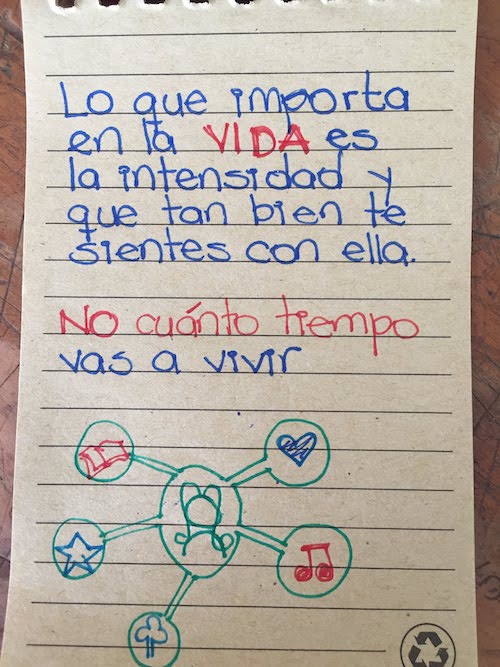 Lo que importa
en la VIDA es
la intensidad y
que tan bien te
sientes con ella.
No cuánto tiempo
vas a vivir